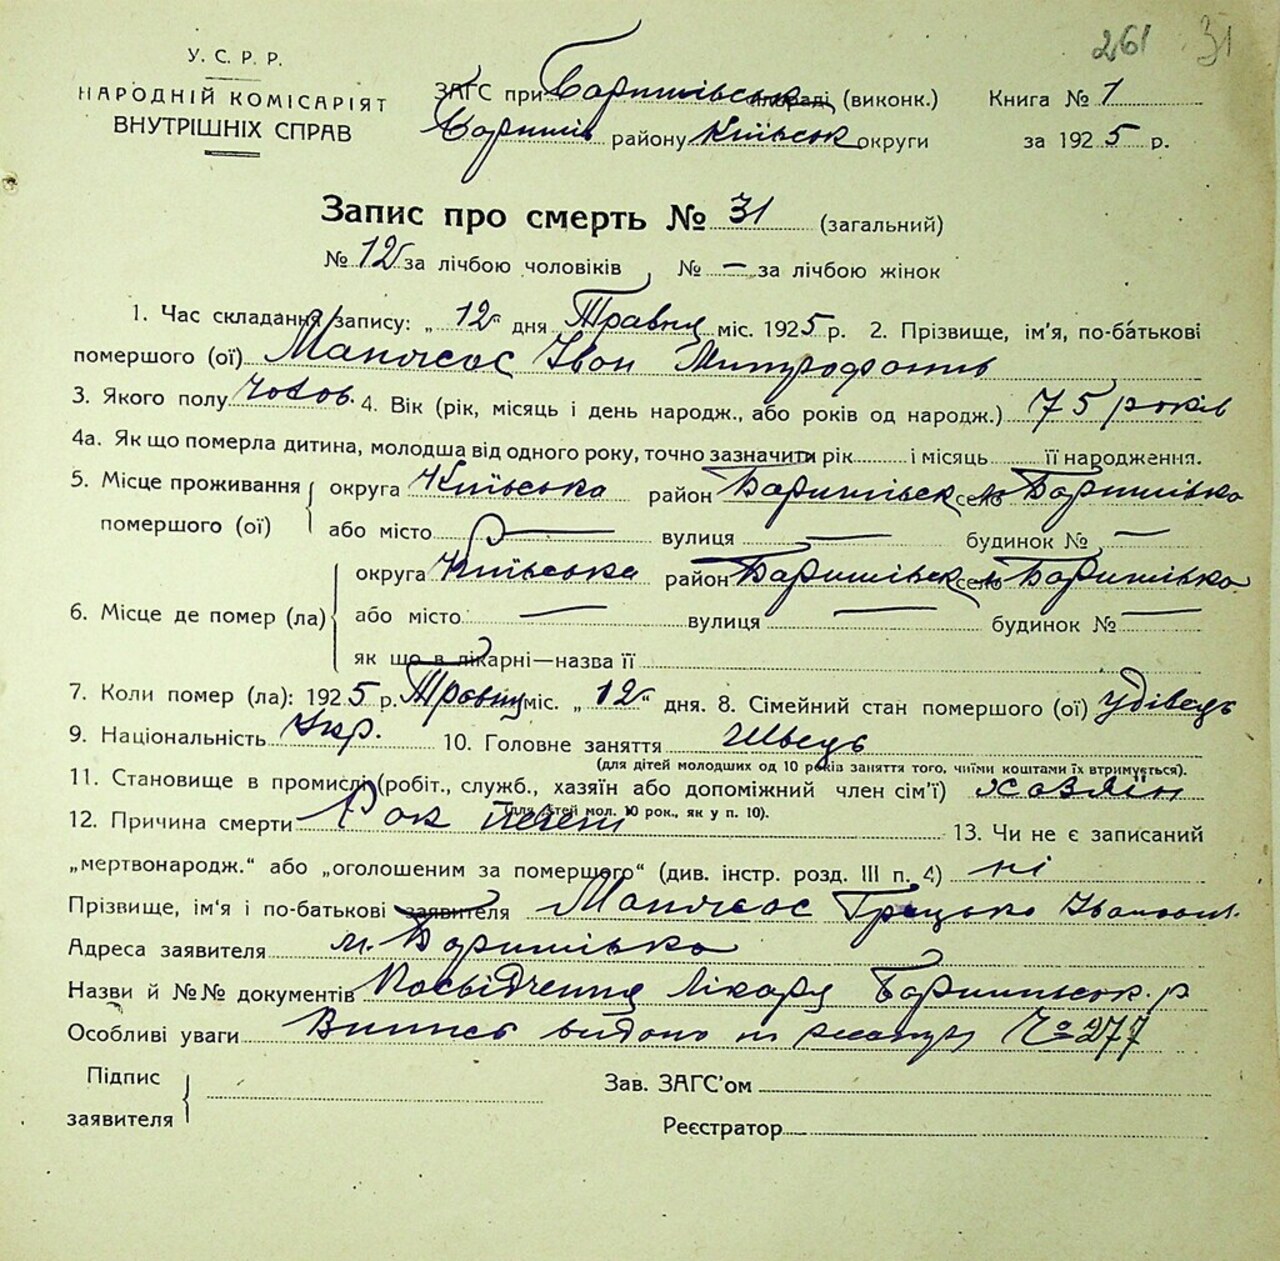 261 31
У. С. Р. Р.
НАРОДНІЙ КОМІСАРІЯТ
ВНУТРІШНІХ СПРАВ
ЗАГС при Баришівськ (виконк.)
Баришів району Київськ округи
Книга № 1
за 1925 р.
Запис про смерть № 31 (загальний)
№ 12 за лічбою чоловіків, № — за лічбою жінок
1. Час складання запису: „12“ дня Травня міс. 1925 р. 2. Прізвище, ім'я, по-батькові
помершого (ої) Іван Митрофанів
3. Якого полу чолов. 4. Вік (рік, місяць і день народж., або років од народж.) 75 років
4а. Як що померла дитина, молодша від одного року, точно зазначити рік і місяць її народження.
5. Місце проживання помершого (ої) округа Київська район Баришівськ село Баришівка
або місто — вулиця — будинок № —
6. Місце де помер (ла) округа Київська район Баришівськ село Баришівка
або місто — вулиця — будинок № —
як що в лікарні—назва її
7. Коли помер (ла): 1925 р. Травня міс. „12“ дня. 8. Сімейний стан помершого (ої) удівець
9. Національність Укр. 10. Головне заняття Швець
(для дітей молодших од 10 років заняття того, чиїми коштами їх втримується).
11. Становище в промислі (робіт., служб., хазяїн або допоміжний член сім'ї) хазяїн
(для дітей мол. 10 рок., як у п. 10).
12. Причина смерти Рак печені 13. Чи не є записаний
„мертвонародж.“ або „оголошеним за помершого“ (див. інстр. розд. III п. 4) ні
Прізвище, ім'я і по-батькові заявителя Грицько Іванов.
Адреса заявителя м. Баришівка
Назви й №№ документів Посвідчення лікаря Баришівськ. р
Особливі уваги Випись видано по № 277
Підпис заявителя
Зав. ЗАГС'ом
Реєстратор